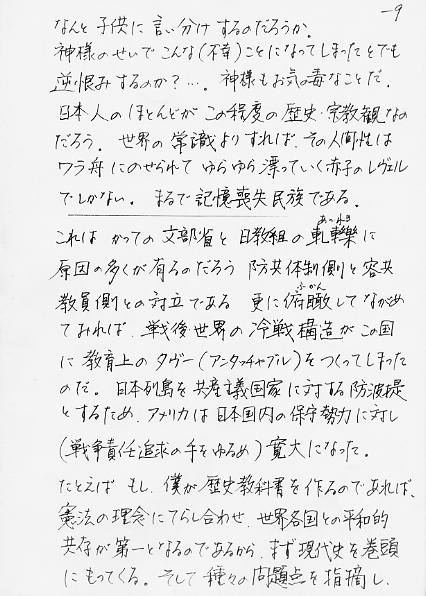 -9
なんと子供に言い分けするのだろうか。
神様のせいでこんな(不幸)ことになってしまったとでも
逆恨みするのか?…。神様もお気の毒なことだ。
日本人のほとんどがこの程度の歴史・宗教観なの
だろう。世界の常識よりすれば、その人間性は
ワラ舟にのせられてゆらゆら漂っていく赤子のレヴェル
でしかない。まるで記憶喪失民族である。
これはかつての文部省と日教組の軋轢に
あつれき
原因の多くが有るのだろう 防共体制側と容共
教員側との対立である 更に俯瞰してながめ
ふかん
てみれば、戦後世界の冷戦構造がこの国
に教育上のタヴー(アンタッチャブル)をつくってしまった
のだ。日本列島を共産主義国家に対する防波堤
とするため、アメリカは日本国内の保守勢力に対し
(戦争責任追求の手をゆるめ)寛大になった。
たとえばもし、僕が歴史教科書を作るのであれば、
憲法の理念にてらし合わせ、世界各国との平和的
共存が第一となるのであるから、まず現代史を巻頭
にもってくる。そして種々の問題点を指摘し、